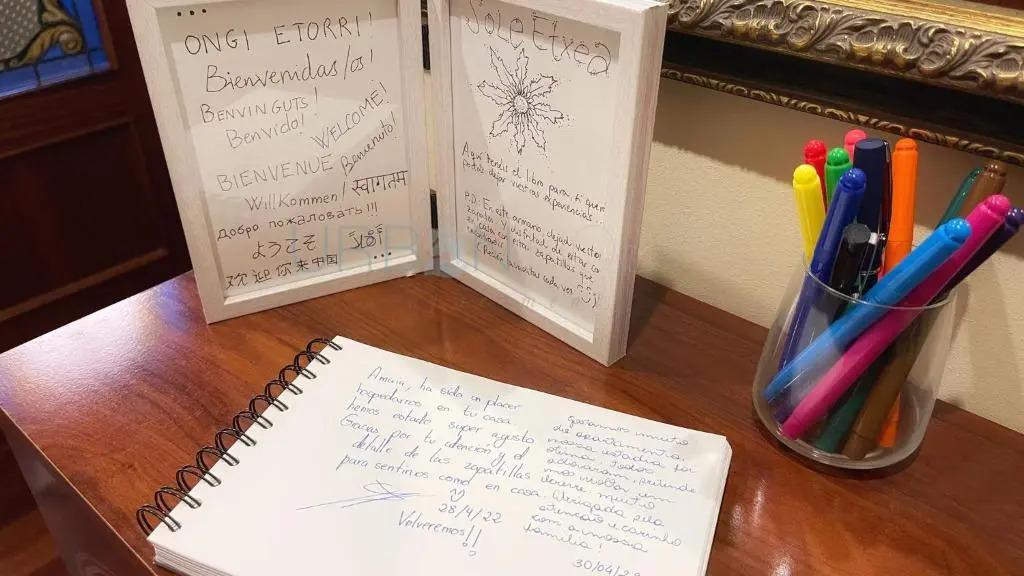 ONGI ETORRI!
Bienvenidas/os!
BENVINGUTS!
Benvido!
WELCOME!
BIENVENUE
Benvenuto!
Willkommen!
स्वागतम
Добро пожаловать!!!
ようこそ
欢迎你来中国
Sole Etxea
Aquí tenéis el libro para, si queréis,
podáis dejar vuestras experiencias.
P.D: En este armario dejad vuestros
zapatos y disfrutad de estar como
en casa con estas zapatillas que
cada vez
URBAN
Amaia, ha sido un placer
hospedarnos en tu casa
hemos estado super agusto
Gracias por tu atención y el
detalle de las zapatillas
para sentirnos como en casa.
28/4/22
Volveremos!!
Gostamos muito
do apartamento
nossa estadia foi
ótima, todos
adoraram, pretende
mos voltar em
breve muito
obrigada pela
atenção e carinho
com a nossa
família!
30/04/22